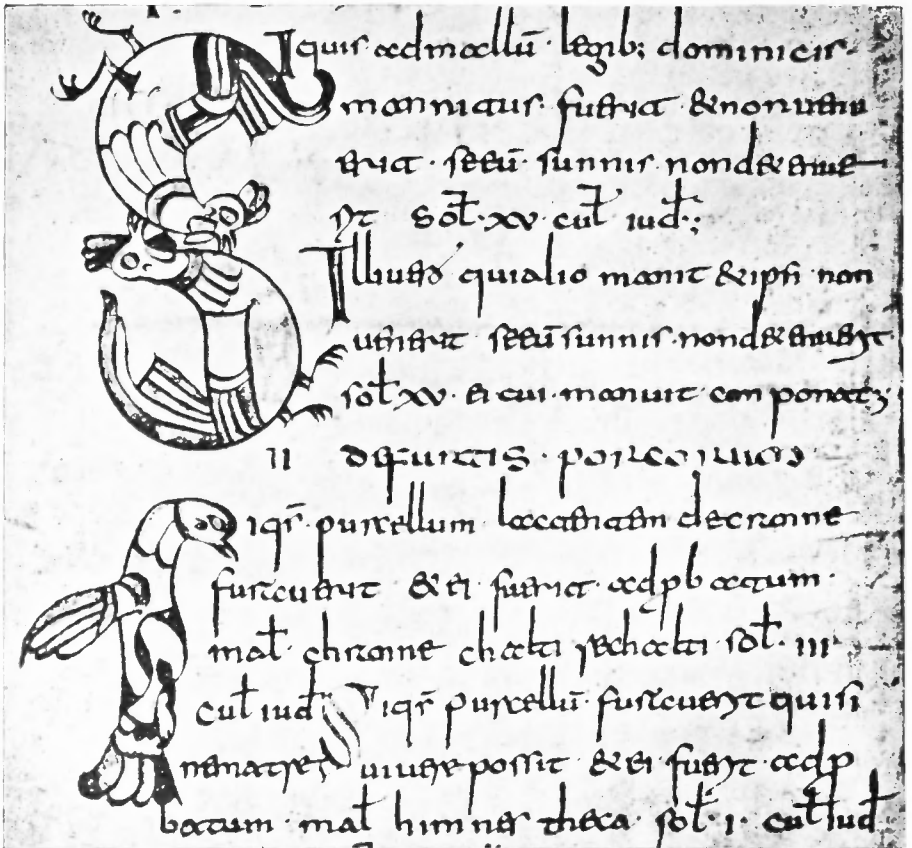 Siquis ad mallū · legib; dominicis
mannitus · fuerit · & non uene
erit · si eū · sunnis · non detenue
rit sol · xv · cul iud ·;
Ille uero qui alio manit & ipsi non
uenerit si eū sunnis · non detenuerit
sol xv · ei cui · manuit conponat;
II de furtis · porcorum
Siqs purcellum lactantem de cranne
furauerit & ei fuerit · adpbatum ·
mal · chranne chalti rechalti sol · III
cul iud Siqs purcellū furauerit qui si
ne matre uiuere possit & ei fuerit adp
batum · mal himnes theca · sol · I · cul iud